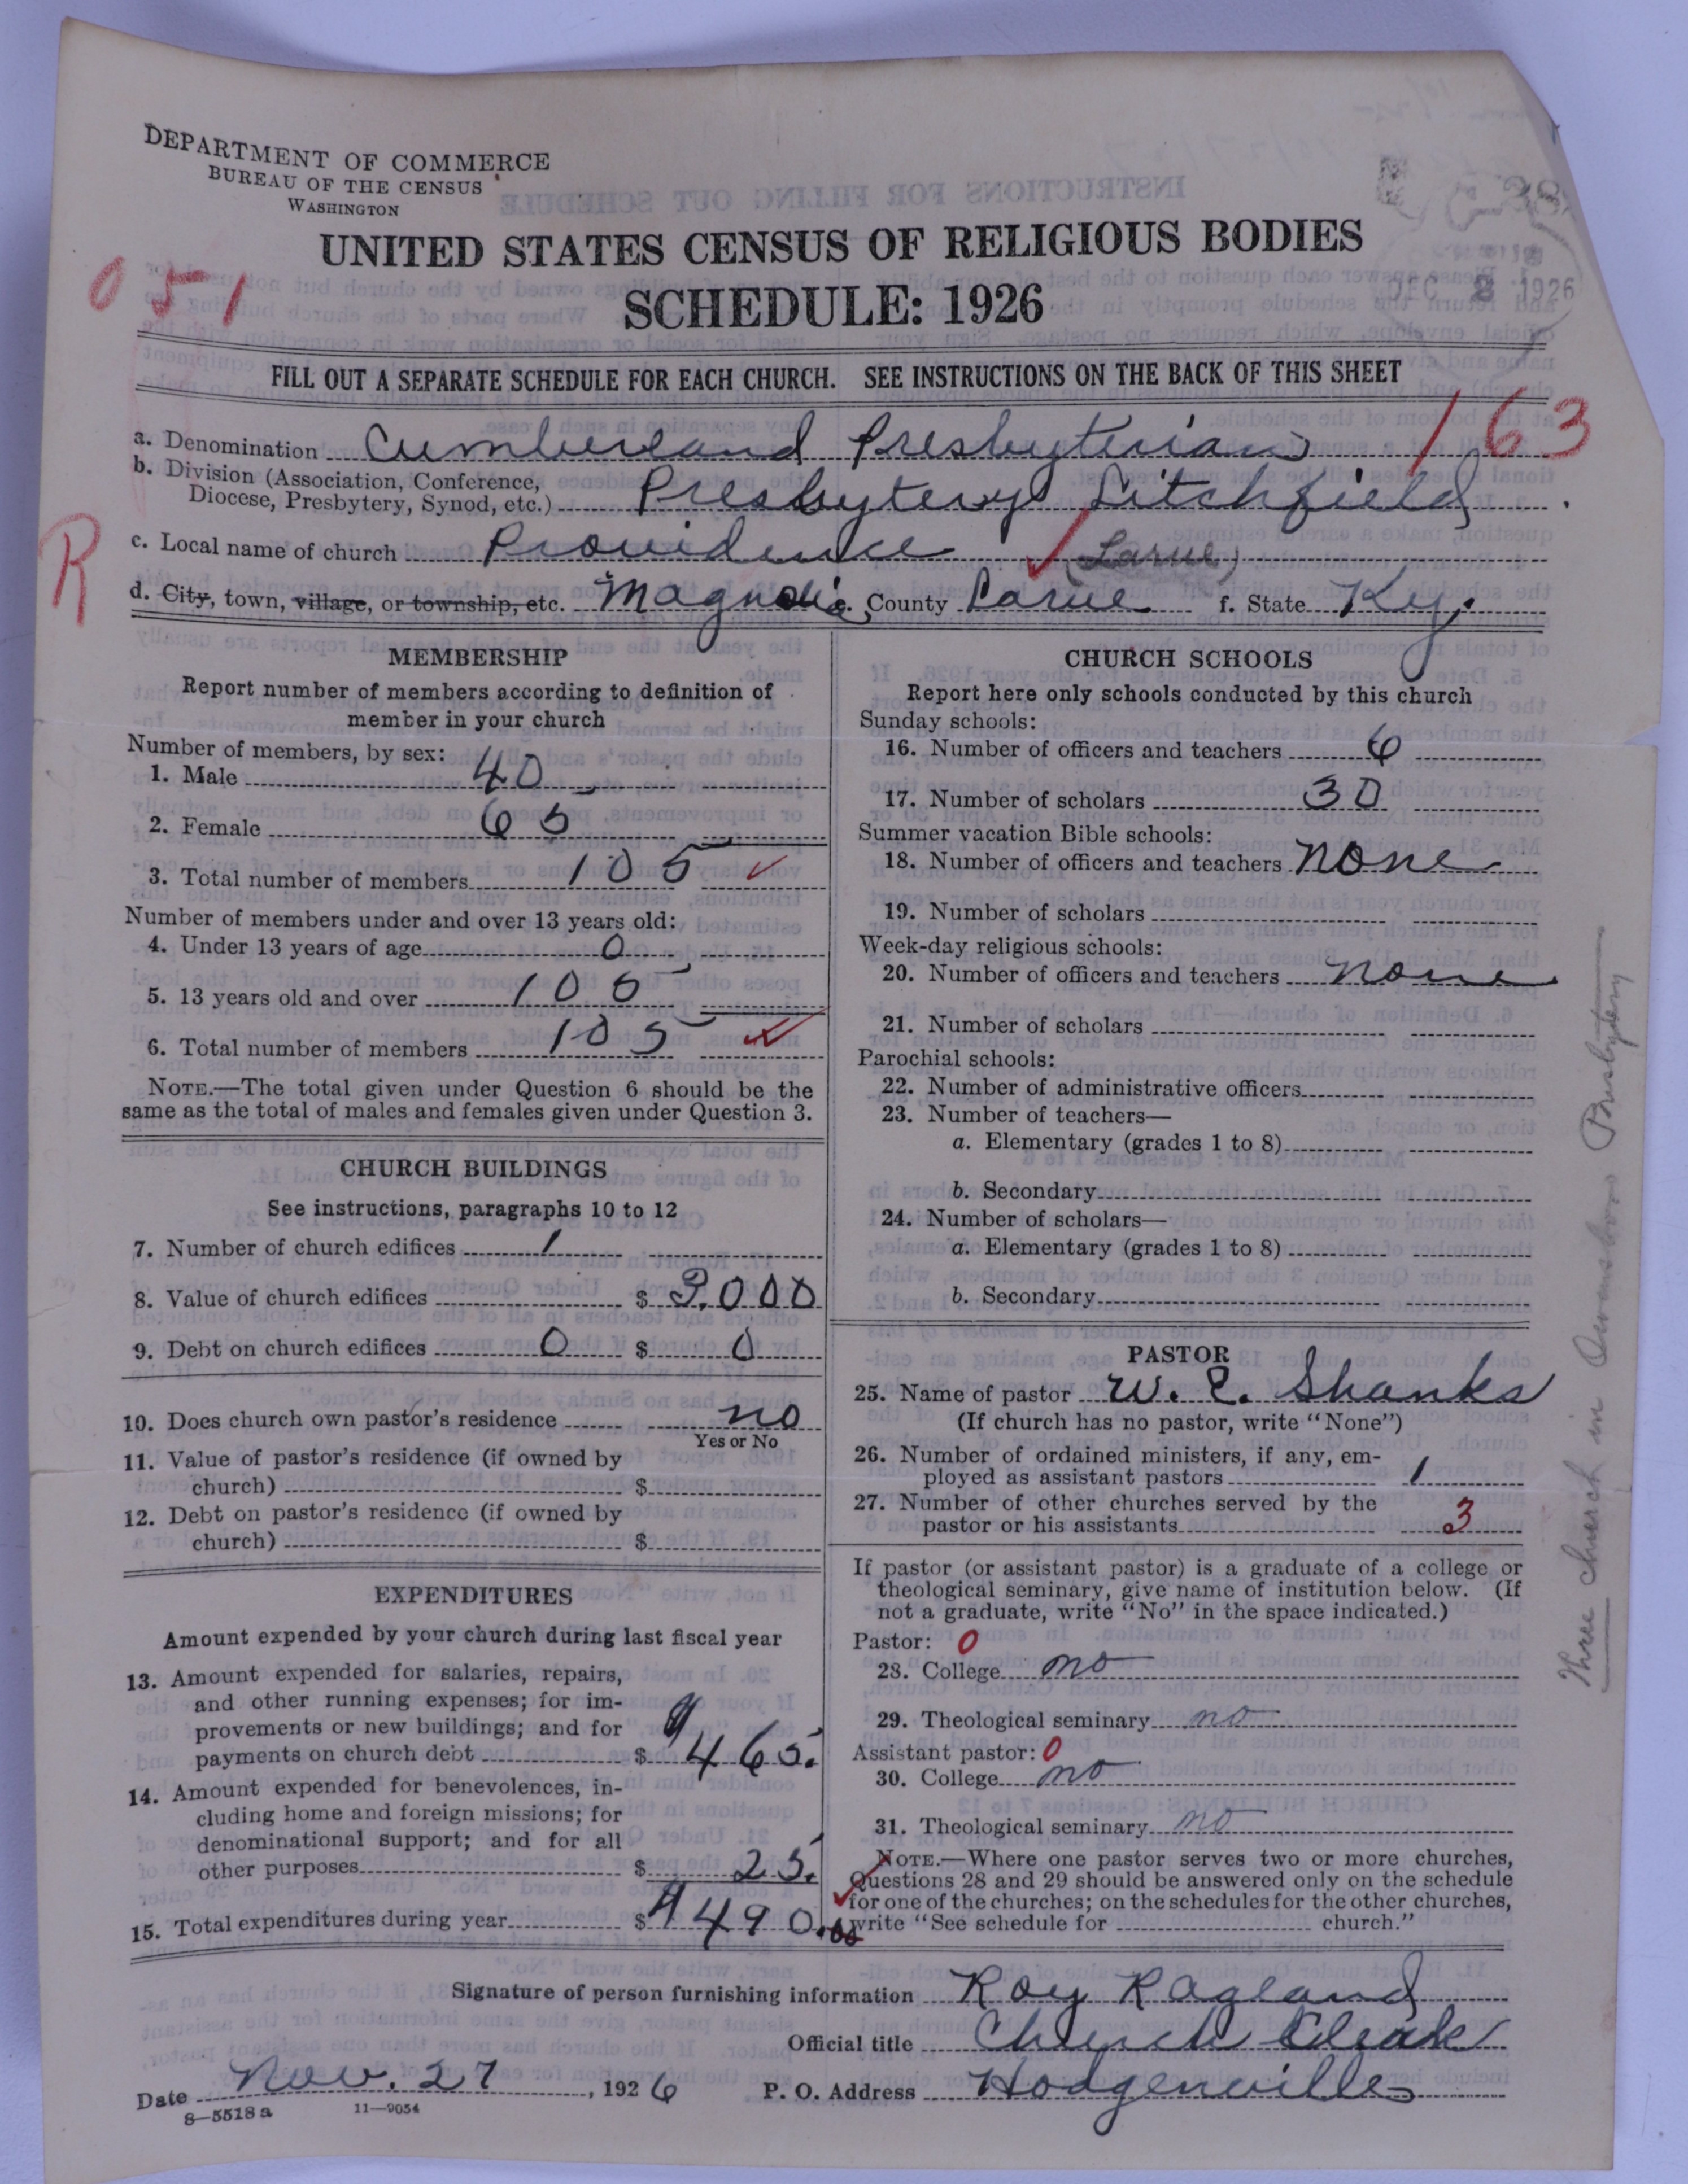 DEPARTMENT OF COMMERCE
BUREAU OF THE CENSUS
WASHINGTON
UNITED STATES CENSUS OF RELIGIOUS BODIES
SCHEDULE: 1926
051
DEC 2 1926
FILL OUT A SEPARATE SCHEDULE FOR EACH CHURCH. SEE INSTRUCTIONS ON THE BACK OF THIS SHEET
163
a. Denomination Cumberland Presbyterian
b. Division (Association, Conference,
Diocese, Presbytery, Synod, etc.) Presbytery Litchfield
R
c. Local name of church Providence ✓ (Larue)
d. City, town, village, or township, etc. Magnolia County Larue f. State Ky.
MEMBERSHIP
Report number of members according to definition of
member in your church
Number of members, by sex:
1. Male 40
2. Female 65
3. Total number of members 105 ✓
Number of members under and over 13 years old:
4. Under 13 years of age 0
5. 13 years old and over 105
6. Total number of members 105 ✓
NOTE.—The total given under Question 6 should be the
same as the total of males and females given under Question 3.
CHURCH BUILDINGS
See instructions, paragraphs 10 to 12
7. Number of church edifices 1
8. Value of church edifices $ 3,000
9. Debt on church edifices 0 $ 0
10. Does church own pastor's residence no
Yes or No
11. Value of pastor's residence (if owned by
church) $
12. Debt on pastor's residence (if owned by
church) $
EXPENDITURES
Amount expended by your church during last fiscal year
13. Amount expended for salaries, repairs,
and other running expenses; for im-
provements or new buildings; and for
payments on church debt $ 465.
14. Amount expended for benevolences, in-
cluding home and foreign missions; for
denominational support; and for all
other purposes $ 25.
15. Total expenditures during year $ 490.00
CHURCH SCHOOLS
Report here only schools conducted by this church
Sunday schools:
16. Number of officers and teachers 6
17. Number of scholars 30
Summer vacation Bible schools:
18. Number of officers and teachers none
19. Number of scholars
Week-day religious schools:
20. Number of officers and teachers none
21. Number of scholars
Parochial schools:
22. Number of administrative officers
23. Number of teachers—
a. Elementary (grades 1 to 8)
b. Secondary
24. Number of scholars—
a. Elementary (grades 1 to 8)
b. Secondary
PASTOR
25. Name of pastor W. E. Shanks
(If church has no pastor, write "None")
26. Number of ordained ministers, if any, em-
ployed as assistant pastors 1
27. Number of other churches served by the
pastor or his assistants 3
If pastor (or assistant pastor) is a graduate of a college or
theological seminary, give name of institution below. (If
not a graduate, write "No" in the space indicated.)
Pastor: 0
28. College no
29. Theological seminary no
Assistant pastor: 0
30. College no
31. Theological seminary no
NOTE.—Where one pastor serves two or more churches,
Questions 28 and 29 should be answered only on the schedule
for one of the churches; on the schedules for the other churches,
write "See schedule for church."
Three church in Owensboro Presbytery
Signature of person furnishing information Roy Ragland
Official title Church Clerk
Date Nov. 27, 1926 P. O. Address Hodgenville
8—5518 a 11—9054